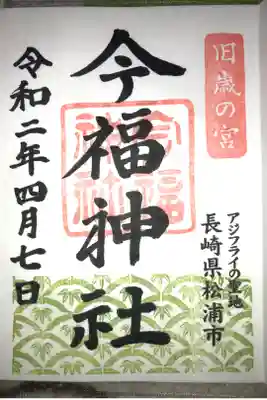 旧歳の宮
アジフライの聖地
長崎県松浦市
今福神社
今福神社
令和二年四月七日